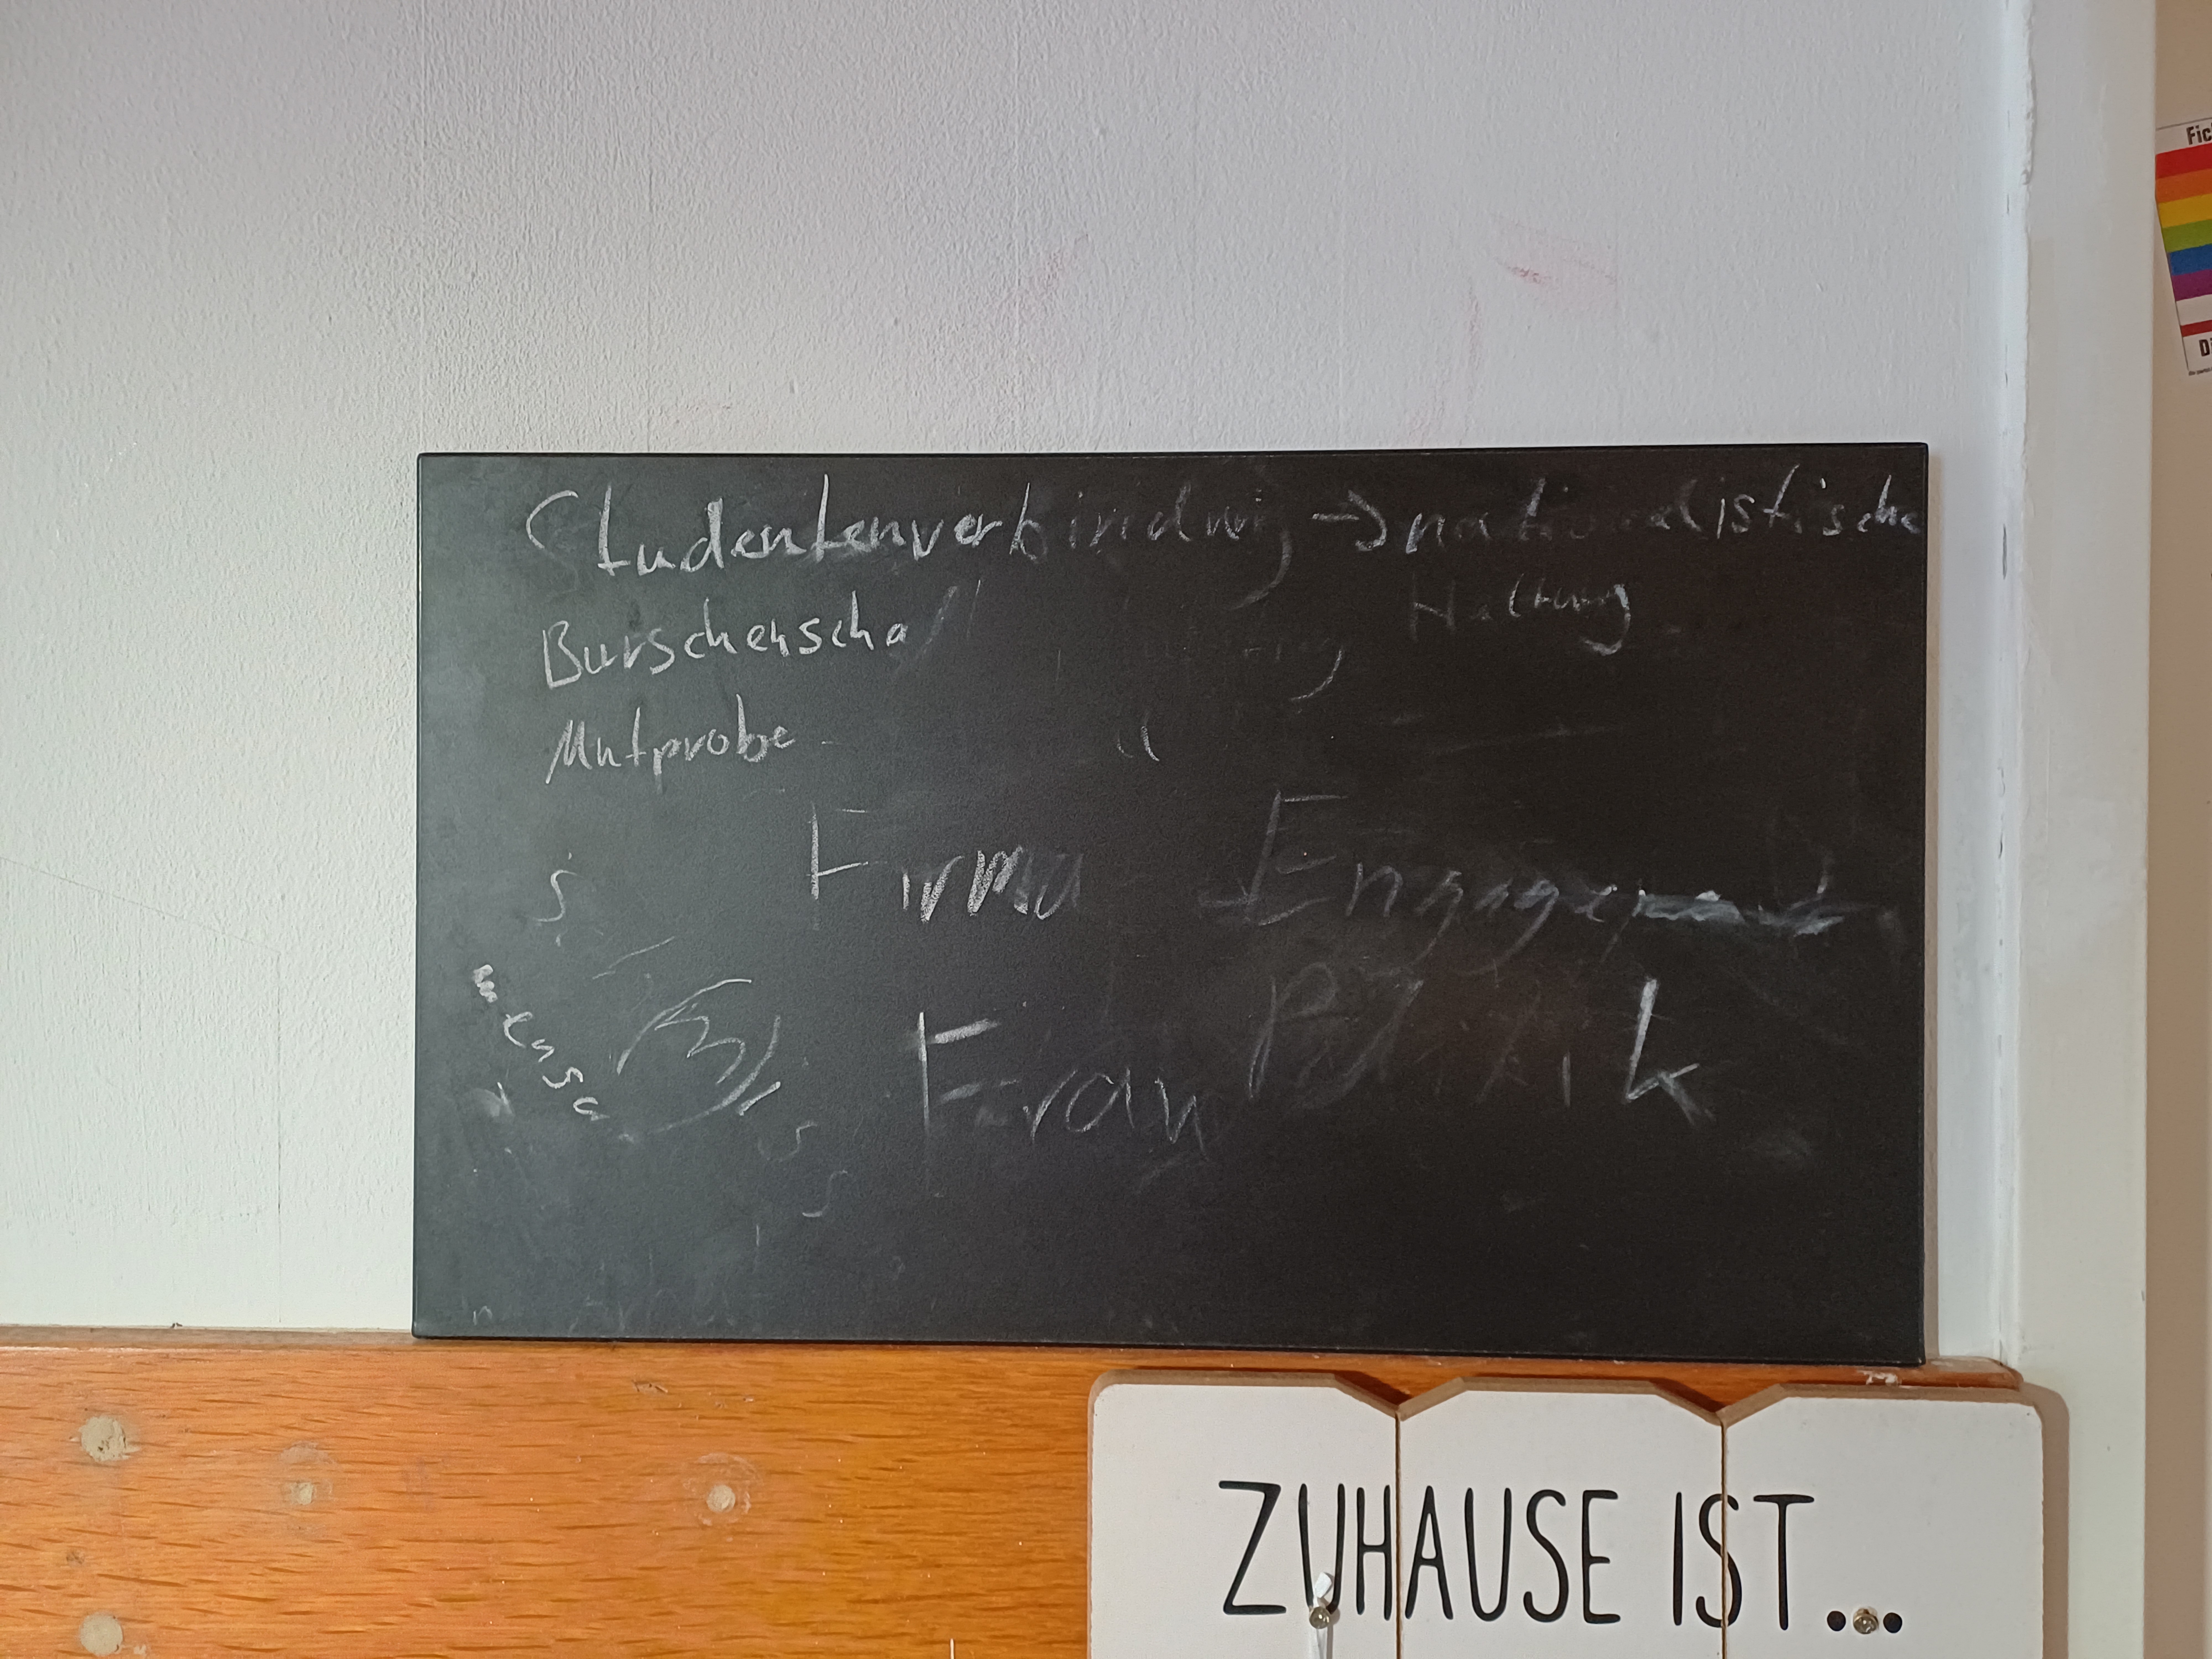 Studentenverbindung → nationalistische
Haltung
Burschenscha
Mutprobe
Firma Engagement
Politik
Frau
ZUHAUSE IST...